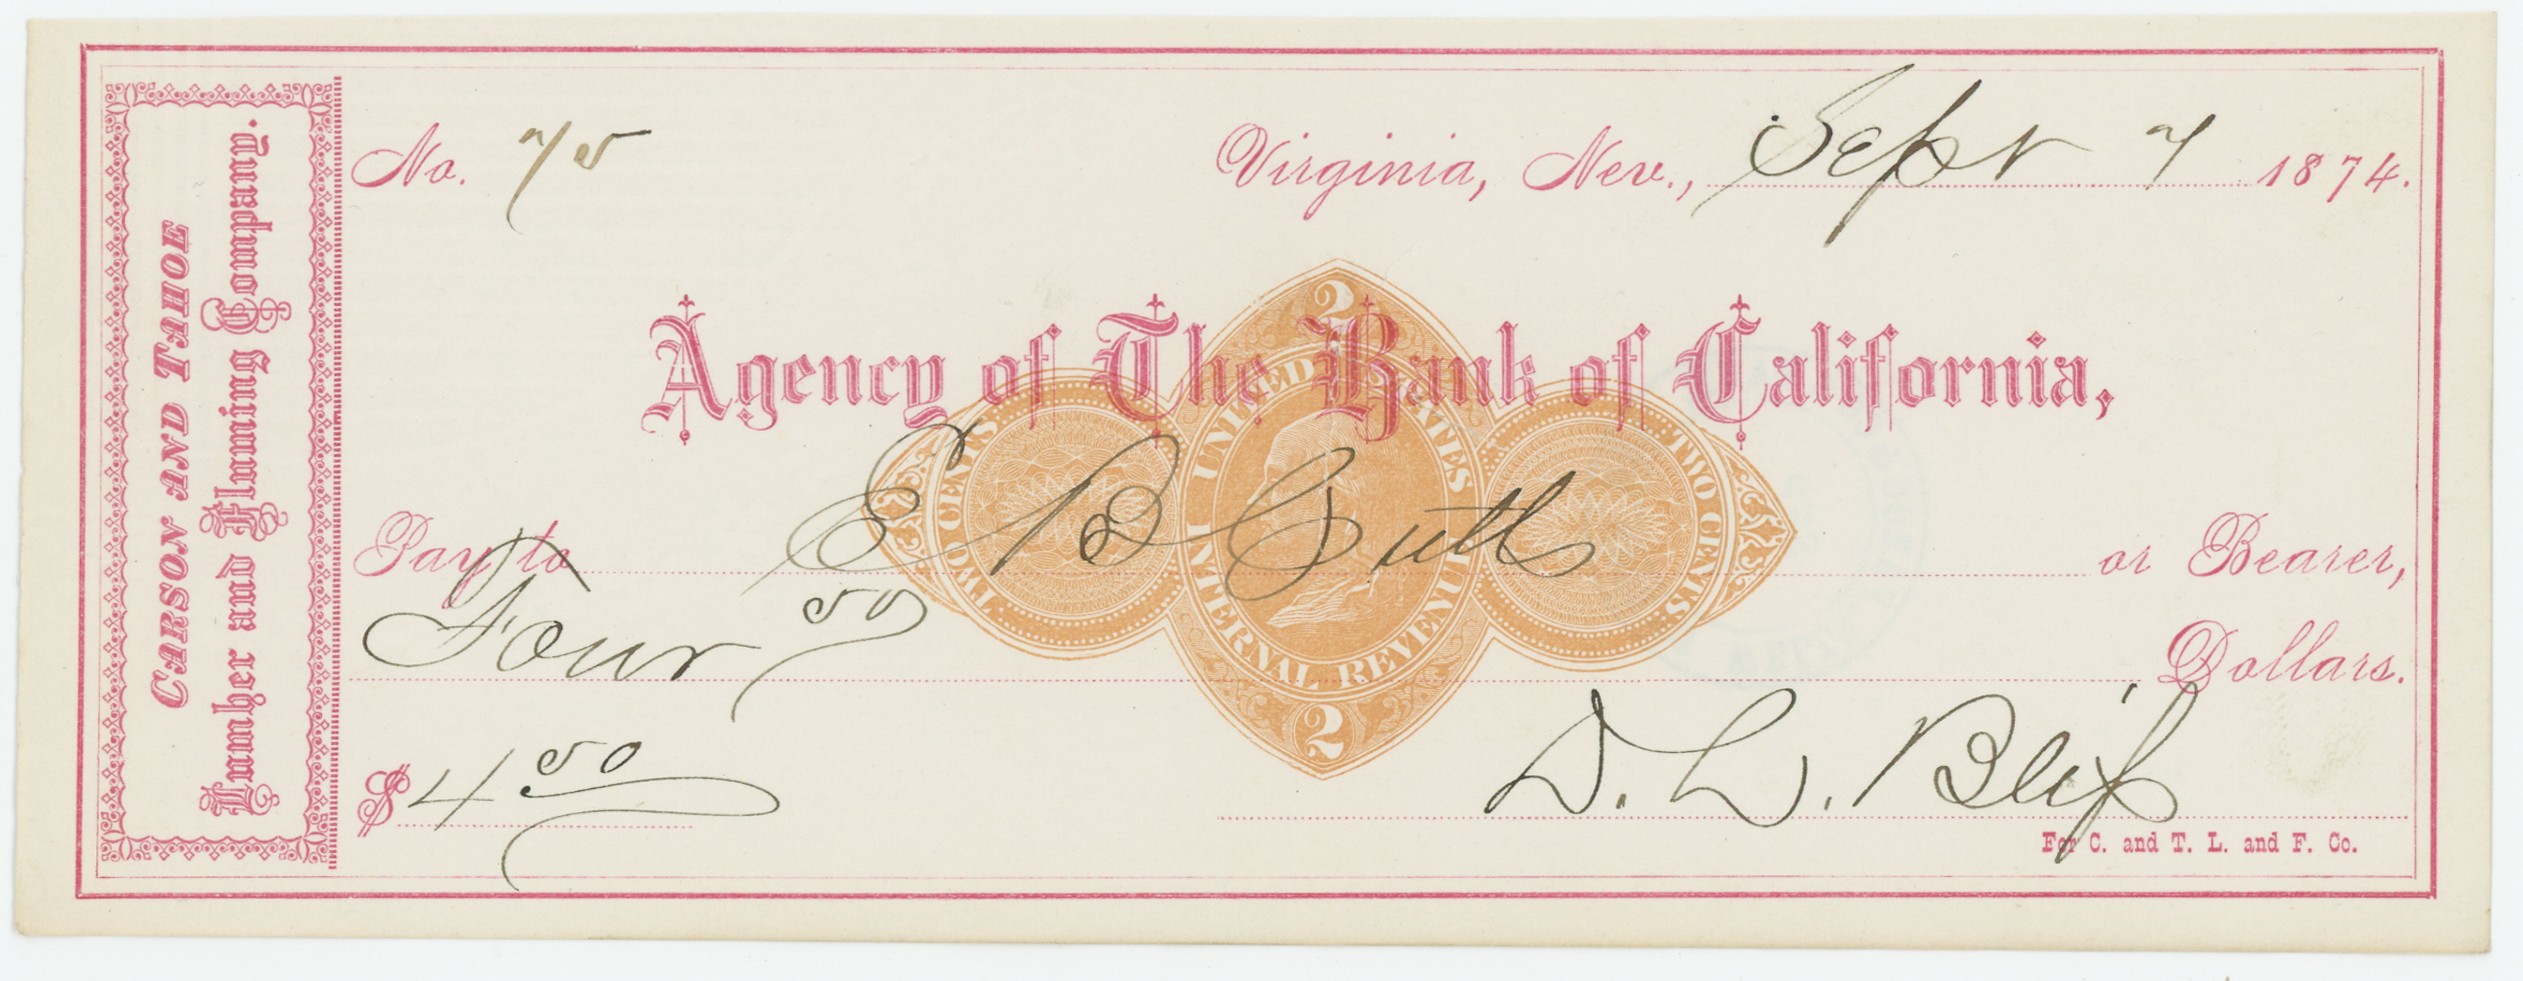 CARSON AND TAHOE
Lumber and Fluming Company.
No. 75
Virginia, Nev., Sept 7 1874.
Agency of The Bank of California,
Pay to E B or Bearer,
Four 50 Dollars.
$ 4 50
D. L. Bliss
For C. and T. L. and F. Co.
2
UNITED STATES
INTERNAL REVENUE
TWO CENTS
TWO CENTS
2